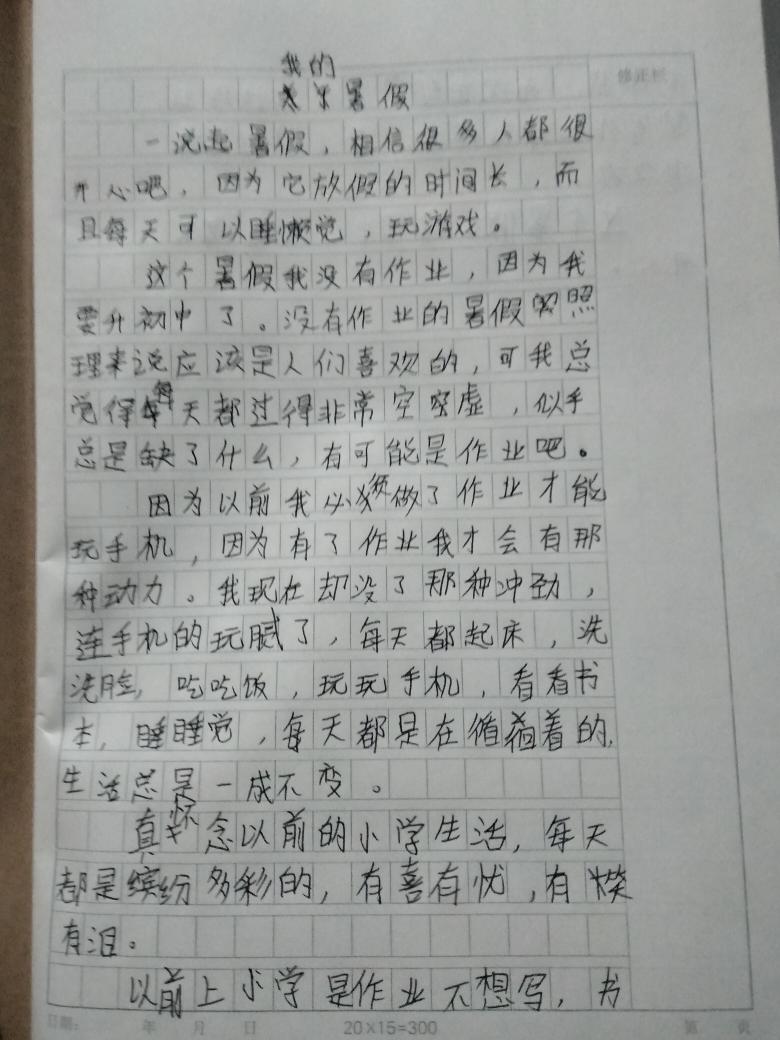 我的
暑假
修正栏
一说起暑假，相信很多人都很
开心吧，因为它放假的时间长，而
且每天可以睡懒觉，玩游戏。
这个暑假我没有作业，因为我
要升初中了。没有作业的暑假照
理来说应该是人们喜欢的，可我总
觉得每天都过得非常空空虚，似乎
总是缺了什么，有可能是作业吧。
因为以前我必须做了作业才能
玩手机，因为有了作业我才会有那
种动力。我现在却没了那种冲劲，
连手机的玩腻了，每天都起床，洗
洗脸，吃吃饭，玩玩手机，看看书
本，睡睡觉，每天都是在循着的，
生活总是一成不变。
真怀念以前的小学生活，每天
都是缤纷多彩的，有喜有忧，有笑
有泪。
以前上小学是作业不想写，书
日期： 年 月 日 20×15=300 第 页